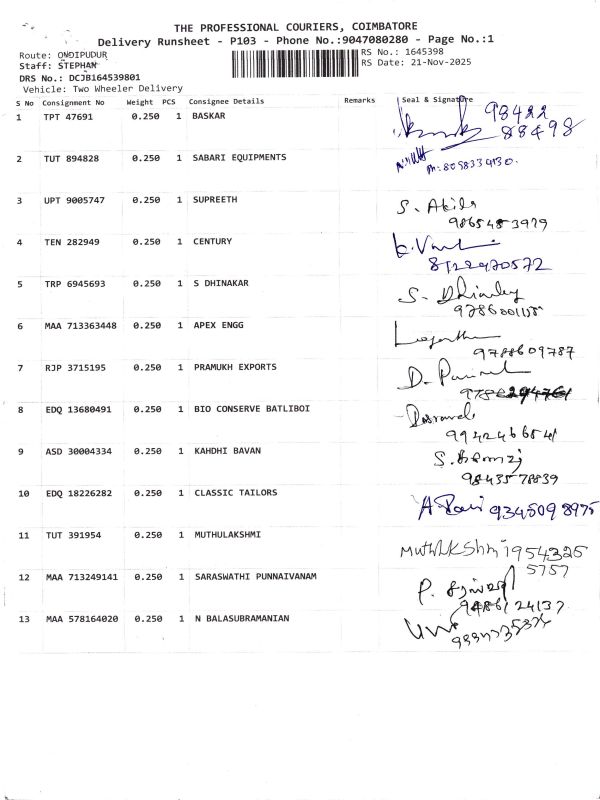 THE PROFESSIONAL COURIERS, COIMBATORE
Delivery Runsheet - P103 - Phone No.:9047080280 - Page No.:1
Route: ONDIPUDUR
RS No.: 1645398
Staff: STEPHAN
RS Date: 21-Nov-2025
DRS No.: DCJB164539801
Vehicle: Two Wheeler Delivery
S No Consignment No Weight PCS Consignee Details Remarks Seal & Signature
1 TPT 47691 0.250 1 BASKAR 98422
88498
2 TUT 894828 0.250 1 SABARI EQUIPMENTS
3 UPT 9005747 0.250 1 SUPREETH S. Akila
9865483979
4 TEN 282949 0.250 1 CENTURY
8122970572
5 TRP 6945693 0.250 1 S DHINAKAR S.
6 MAA 713363448 0.250 1 APEX ENGG
9788609787
7 RJP 3715195 0.250 1 PRAMUKH EXPORTS D.
8 EDQ 13680491 0.250 1 BIO CONSERVE BATLIBOI
9 ASD 30004334 0.250 1 KAHDHI BAVAN S.
9843578839
10 EDQ 18226282 0.250 1 CLASSIC TAILORS 9345098975
11 TUT 391954 0.250 1 MUTHULAKSHMI Muthulakshmi 954325
5757
12 MAA 713249141 0.250 1 SARASWATHI PUNNAIVANAM P.
9486124137
13 MAA 578164020 0.250 1 N BALASUBRAMANIAN